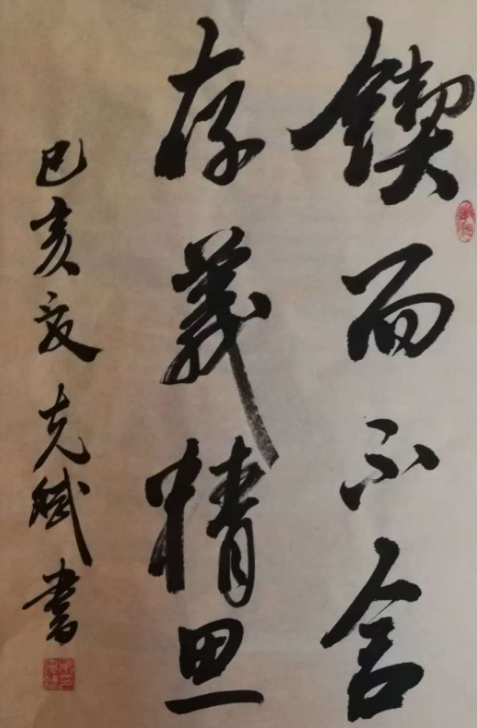 鍥而不舍
存義精思
己亥夏克斌書